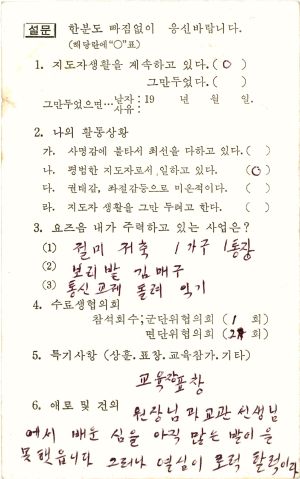 설문 한분도 빠짐없이 응신바랍니다.
(해당란에 "○"표)
1. 지도자생활을 계속하고 있다. ( ○ )
그만두었다. ( )
그만두었으면…날자: 19 년 월 일.
사유:
2. 나의 활동상황
가. 사명감에 불타서 최선을 다하고 있다. ( )
나. 평범한 지도자로서 일하고 있다. ( ○ )
다. 권태감, 좌절감등으로 미온적이다. ( )
라. 지도자 생활을 그만 두려고 한다. ( )
3. 요즈음 내가 주력하고 있는 사업은?
(1) 절미 저축 1가구 1통장
(2) 보리밭 김매구
(3) 통신교재 돌려 익기
4. 수료생협의회
참석회수; 군단위협의회 ( 1 회)
면단위협의회 ( 2 회)
5. 특기사항 (상훈. 표창. 교육참가. 기타)
교육장표창
6. 애로 및 건의 원장님과 교관 선생님
에서 배운 심을 아직 많은 발이을
못했읍니다 그러나 열심이 로력 할력이라